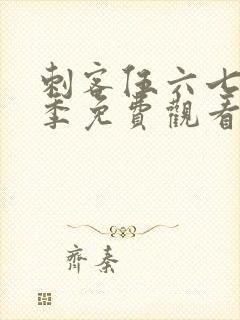 刺客伍六七
季免費觀看
齊秦